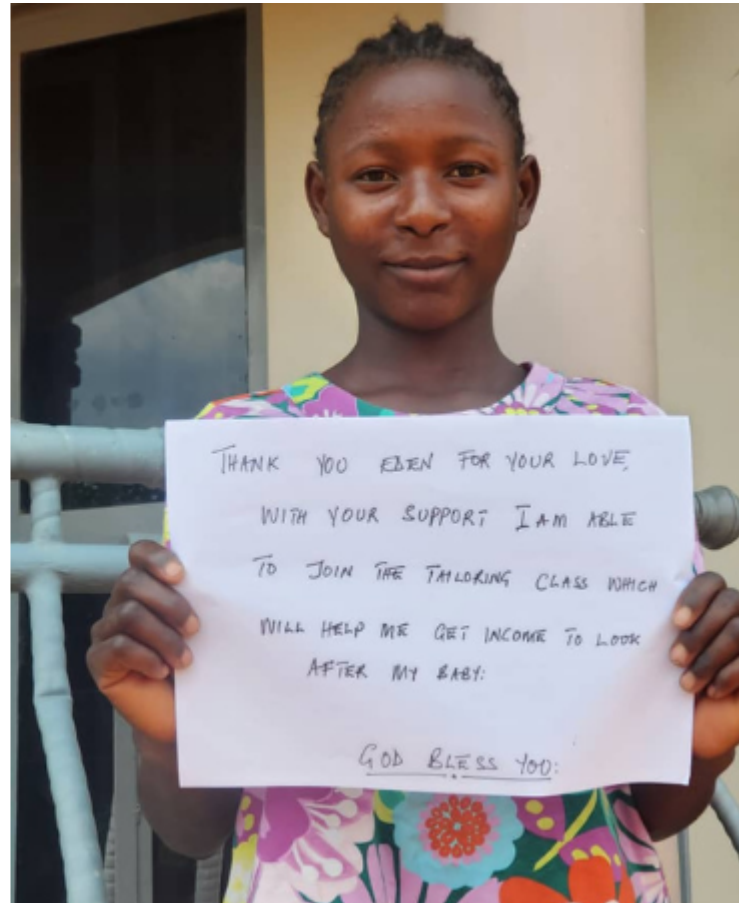 THANK YOU EDEN FOR YOUR LOVE,
WITH YOUR SUPPORT I AM ABLE
TO JOIN THE TAILORING CLASS WHICH
WILL HELP ME GET INCOME TO LOOK
AFTER MY BABY:
GOD BLESS YOU: